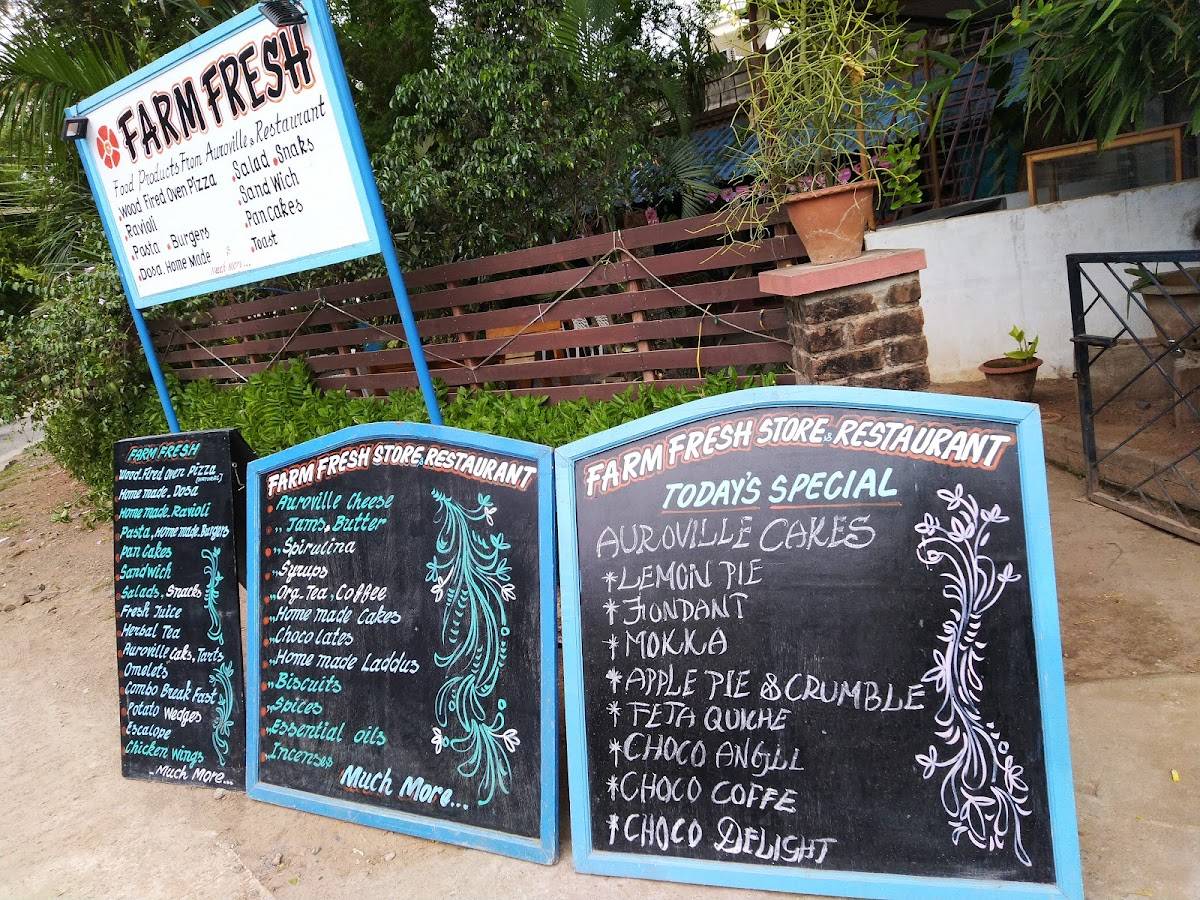 FARM FRESH
Food Products From Auroville & Restaurant
Wood Fired Oven Pizza
Ravioli
Pasta Burgers
Dosa Home Made
Salad Snaks
Sand Wich
Pan Cakes
Toast
Much More...
FARM FRESH
Wood Fired Oven Pizza
Home made Dosa
Home made Ravioli
Pasta, Home made Burgers
Pan Cakes
Sandwich
Salads, Snacks
Fresh Juice
Herbal Tea
Auroville Caks, Tarts
Omelets
Combo Break Fast
Potato Wedges
Escalope
Chicken wings
..Much More...
FARM FRESH STORE & RESTAURANT
Auroville Cheese
,, Jams, Butter
,, Spirulina
,, Syrups
,, Org. Tea, Coffee
,, Home made Cakes
,, Chocolates
,, Home made Laddus
,, Biscuits
,, Spices
,, Essential oils
,, Incenses
Much More...
FARM FRESH STORE & RESTAURANT
TODAY'S SPECIAL
AUROVILLE CAKES
*LEMON PIE
*FONDANT
*MOKKA
*APPLE PIE & CRUMBLE
*FETA QUICHE
*CHOCO ANGLL
*CHOCO COFFE
*CHOCO DELIGHT